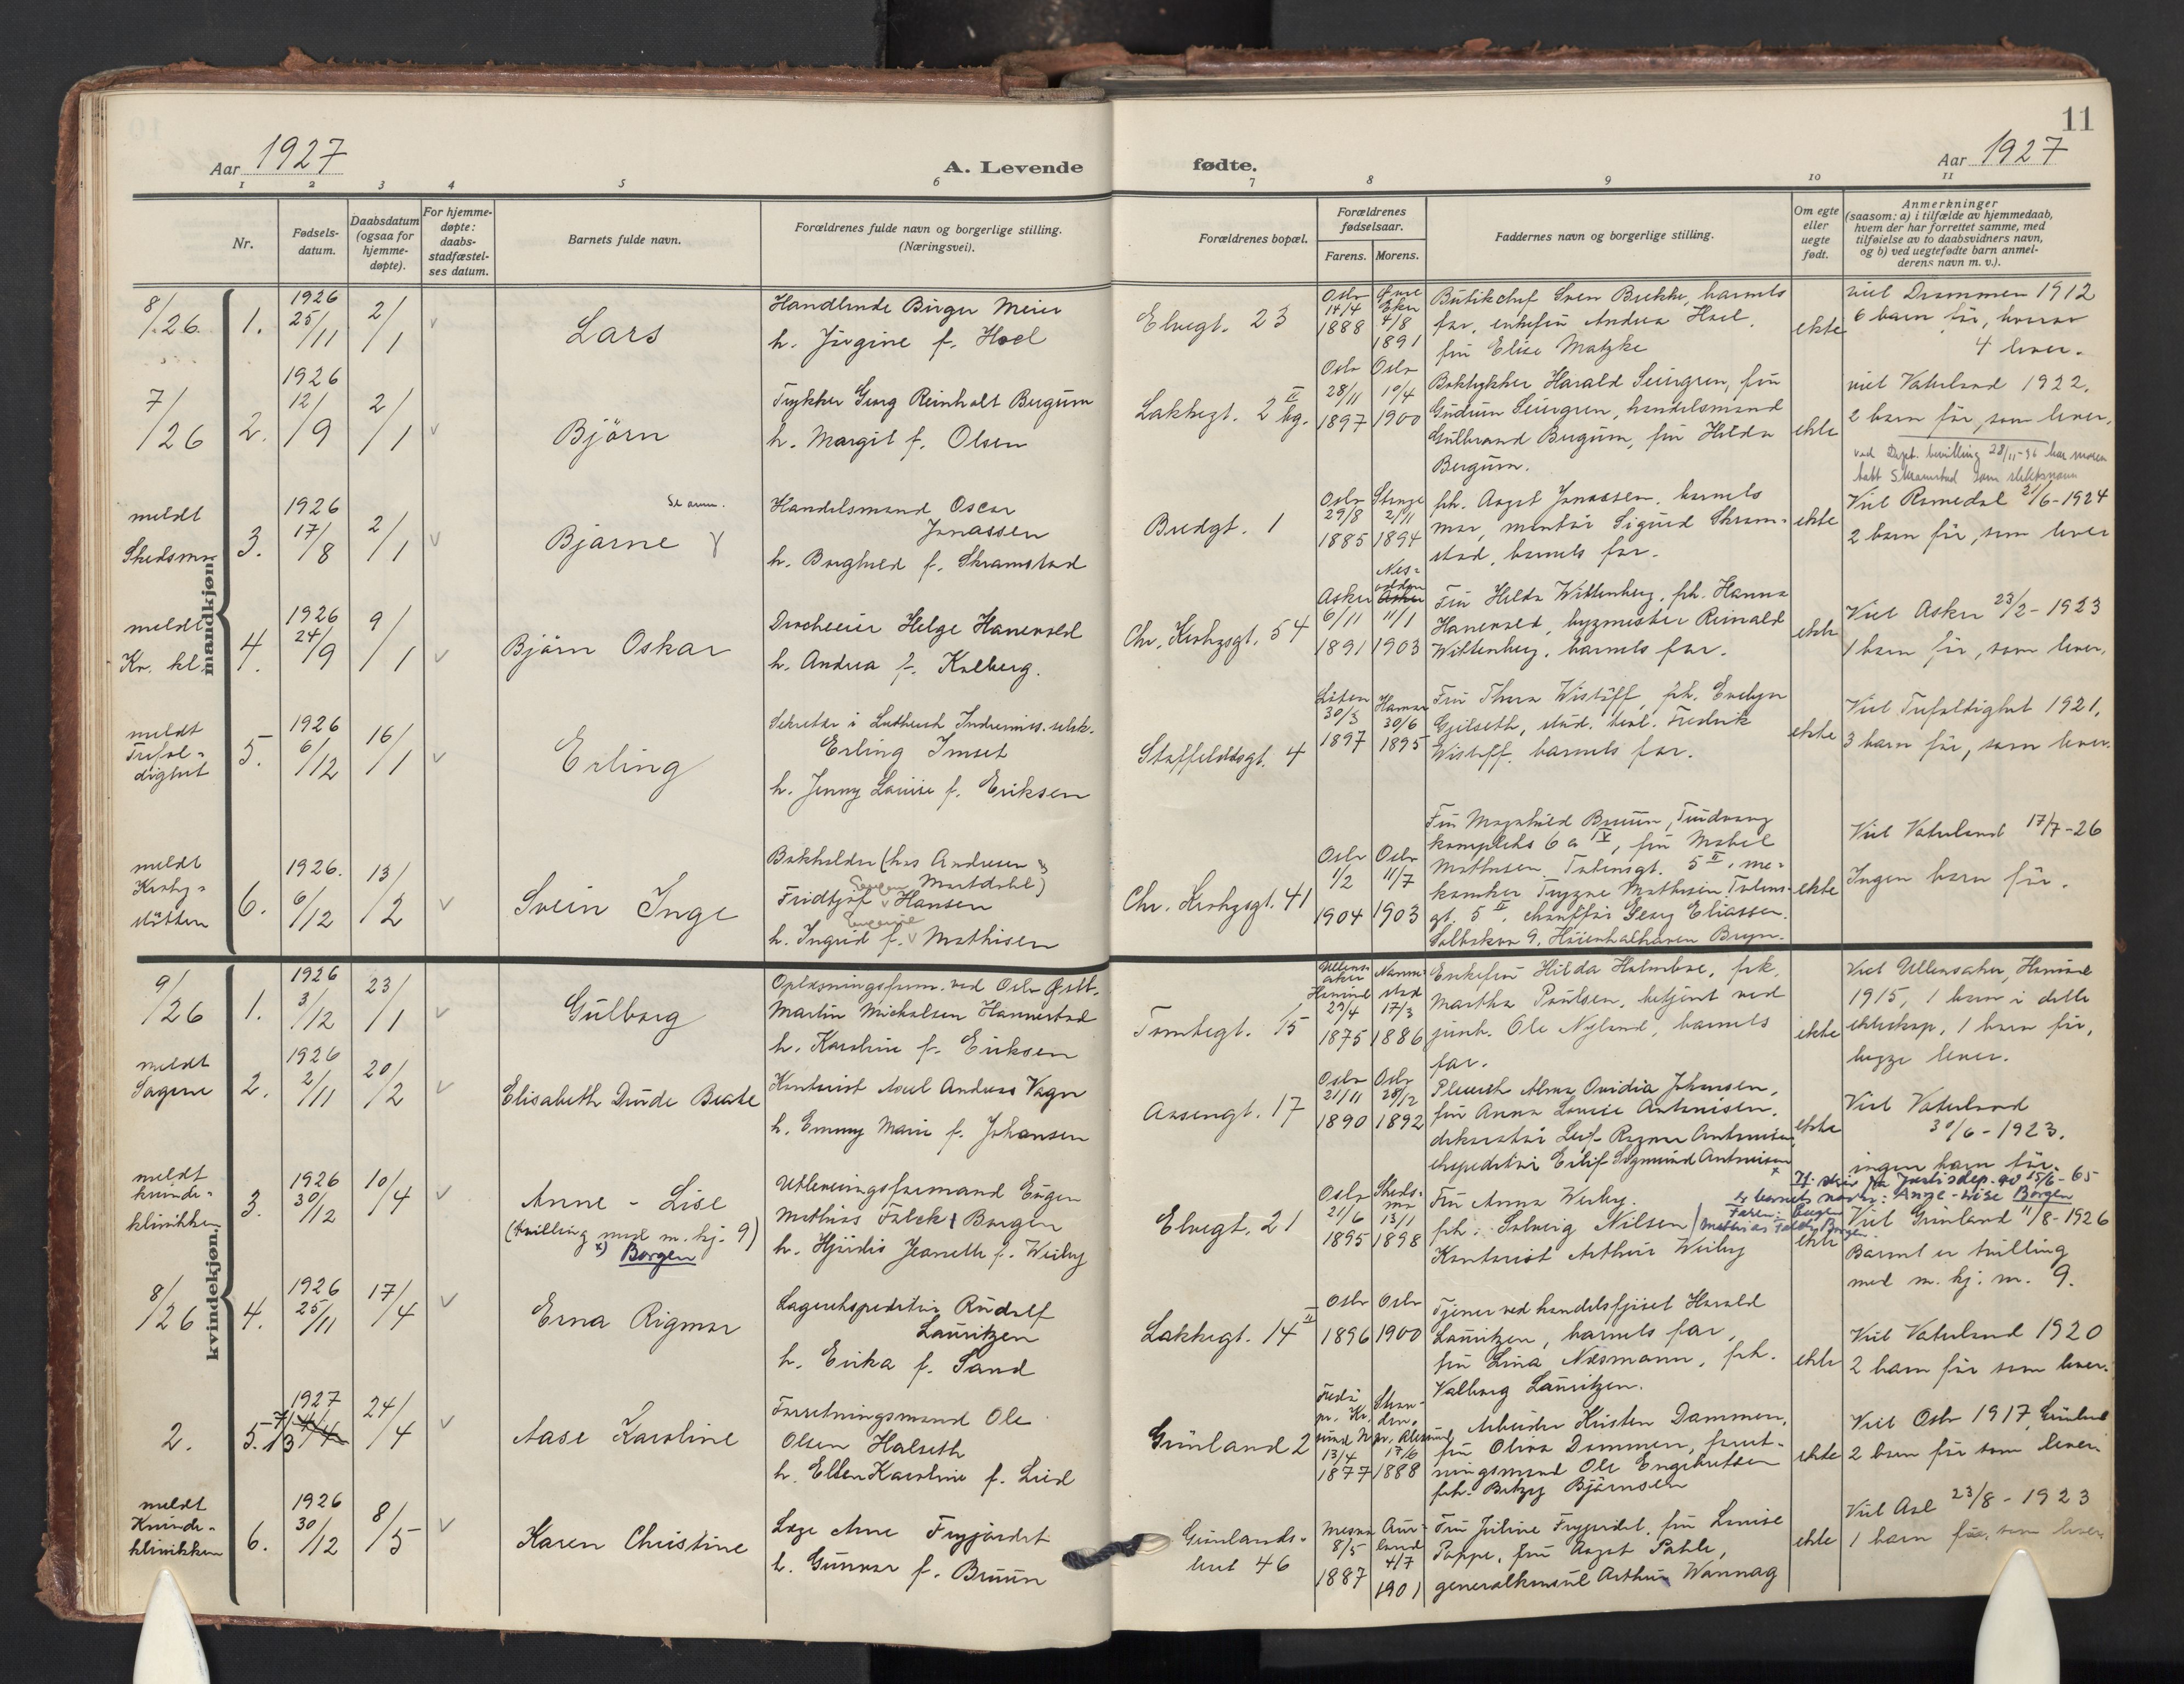 11
Aar 1927
A. Levende
fødte.
Aar 1927
1 2 3 4 5 6 7 8 9 10 11
Nr.
Fødsels-
datum.
Daabsdatum
(ogsaa for
hjemme-
døpte).
For hjemme-
døpte:
daabs-
stadfæstel-
ses datum.
Barnets fulde navn.
Forældrenes fulde navn og borgerlige stilling.
(Næringsvei).
Forældrenes bopæl.
Forældrenes
fødselsaar.
Farens. Morens.
Faddernes navn og borgerlige stilling.
Om egte
eller
uegte
født.
Anmerkninger
(saasom: a) i tilfælde av hjemmedaab,
hvem der har forrettet samme, med
tilføielse av to daabsvidners navn,
og b) ved uegtefødte barn anmel-
derens navn m. v.).
mandkjøn.
8/26 1. 1926 25/11 2/1 Lars
Handlende Birger Meier
h. Jörgine f. Hoel
Elvegt. 23
Oslo 14/4 1888
Øvre Eker 4/8 1891
Butikchef Sven Brekke, barnets
far, enkefru Andrea Hoel,
fru Elise Matzke
ekte
viet Drammen 1912
6 barn før, hvorav
4 lever.
7/26 2. 1926 12/9 2/1 Björn
Trykker Georg Reinholt Bergum
h. Margit f. Olsen
Lakkegt. 2 II bg.
Oslo 28/11 1897
Oslo 10/4 1900
Boktrykker Harald , fru
Gudrun , handelsmand
Gulbrand Bergum, fru Hilda
Bergum.
ekte
viet Vaterland 1922.
2 barn før, som lever.
ved Dept. bevilling 28/11-36 har moren
tatt Skramstad som slektsnavn
meldt
Skedsmo
3. 1926 17/8 2/1 Bjarne
Handelsmand Oscar
Jonassen
h. Borghild f. Skramstad
Bredgt. 1
Oslo 29/8 1885
Stange 2/11 1894
frk. Aagot Jonassen, barnets
mor, montör Sigurd Skram-
stad, barnets far.
ekte
Viet Romedal 21/6-1924
2 barn før, som lever
meldt
Kv. kl.
4. 1926 24/9 9/1 Björn Oskar
Droscheeier Helge Hanevold
h. Andrea f. Kolberg.
Chr. Krohgsgt. 54
Asker 6/11 1891
Nes-
odden
Asker
11/1 1903
Fru Hilda Wittenberg, frk. Hanna
Hanevold, bygmester Reinald
Wittenberg, barnets far.
ekte
Viet Asker 23/2-1923
1 barn før, som lever.
meldt
Trefol-
dighet
5. 1926 6/12 16/1 Erling
Sekretær i Luthersk Indremis. selsk.
Erling Imset
h. Jenny Louise f. Eriksen
Staffeldtsgt. 4
Löten 30/3 1897
Hamar 30/6 1895
Fru Thora Wisløff, frk. Evelyn
Gjelseth, stud. teol. Fredrik
Wisløff, barnets far.
ekte
Viet Trefoldighet 1921.
3 barn før, som lever.
meldt
Krohg-
stötten
6. 1926. 6/12 13/2 Svein Inge
Bokholder (hos Andresen &
Mortdahl)
Fridtjof Hansen
h. Ingrid f. Mathisen
Chr. Krohgsgt. 41
Oslo 1/2 1904
Oslo 11/7 1903
Fru Magnhild Bruun,
kompleks 6 a IV, fru Mabel
Mathisen, Totensgt. 5 II, me-
kaniker Trygve Mathisen Totens-
gt. 5 II, chauffør Georg Eliassen.
ekte
Viet Vaterland 17/7-26
Ingen barn før.
kvindekjøn.
9/26 1. 1926 3/12 23/1 Gulborg
Oplæsningsform. ved Oslo Østb.
Martin Michalsen Hannestad
h. Karoline f. Eriksen
Tomtegt. 15
Ullens-
aker
29/4 1875
17/3 1886
Enkefru Hilda Holmboe, frk.
Martha Poulsen, betjent ved
jernb. Ole Nyland, barnets
far.
ekte
Viet Ullensaker,
1915, 1 barn i dette
ekteskap, 1 barn før,
begge lever.
meldt
Sagene
2. 1926 2/11 20/2 Elisabeth Beate
Kontorist Axel Andreas Vagn
h. Emmy Marie f. Johansen
Aasengt. 17
Oslo 21/11 1890
Oslo 28/12 1892
Pleiersk Alma Ovidia Johansen,
fru Anna Louise Antonisen,
dekoratør Leif Ragnar Antonisen
ekspeditør Eilif Sigmund Antonisen
ekte
Viet Vaterland
30/6-1923.
ingen barn før.
meldt
kvinde-
klinikken
3. 1926 30/12 10/4 Anne - Lise
(tvilling med m. kj. 9)
x) Borgen
Utleveringsformand Eugen
Mathias Falck Borgen
h. Hjördis Jeanette f. Weiby
Elvegt. 21
Oslo 21/6 1895
Skeds-
mo
13/1 1898
Fru Anna Weiby.
frk. Solveig Nilsen
Kontorist Arthur Weiby
ekte
If. skriv fra Justisdep. av 15/6-65
er barnets navn: Anne-Lise Borgen
Faren: Eugen
Mathias Falck Borgen.
Viet Grønland 11/8-1926
Barnet er tvilling
med m. kj. nr. 9.
8/26 4. 1926 25/11 17/4 Erna Rigmor
Lagerekspeditør Rudolf
Lauritzen
h. Erika f. Sand
Lakkegt. 14 II
Oslo 1896
Oslo 1900
Tjener ved handelsfjöset Harald
Lauritzen, barnets far,
fru Lina Næsmann, frk.
Valborg Lauritzen.
ekte
Viet Vaterland 1920
2 barn før som lever.
2. 5. 1927 7/3 24/4 Aase Karoline
Forretningsmand Ole
Olsen Halseth
h. Ellen Karoline f. Lied
Grönland 2
13/4 1877
17/6 1888
Arbeider Kristen Dammen,
fru Oliva Dammen, forret-
ningsmand Ole Engebretsen
frk. Betzy Björnsen
ekte
Viet Oslo 1917, Grönland
2 barn før som lever
meldt
Kvinde-
klinikken
6. 1926 30/12 8/5 Karen Christine
Læge Arne Frygjordet
h. Gunvor f. Bruun
Grønlands-
leret 46
8/5 1887
Aur-
land
4/7 1901
Fru Juline Frygjordet, fru Louise
Poppe, fru Aagot Pahle,
generalkonsul Arthur Wannag
ekte
Viet Asl 23/8-1923
1 barn før, som lever